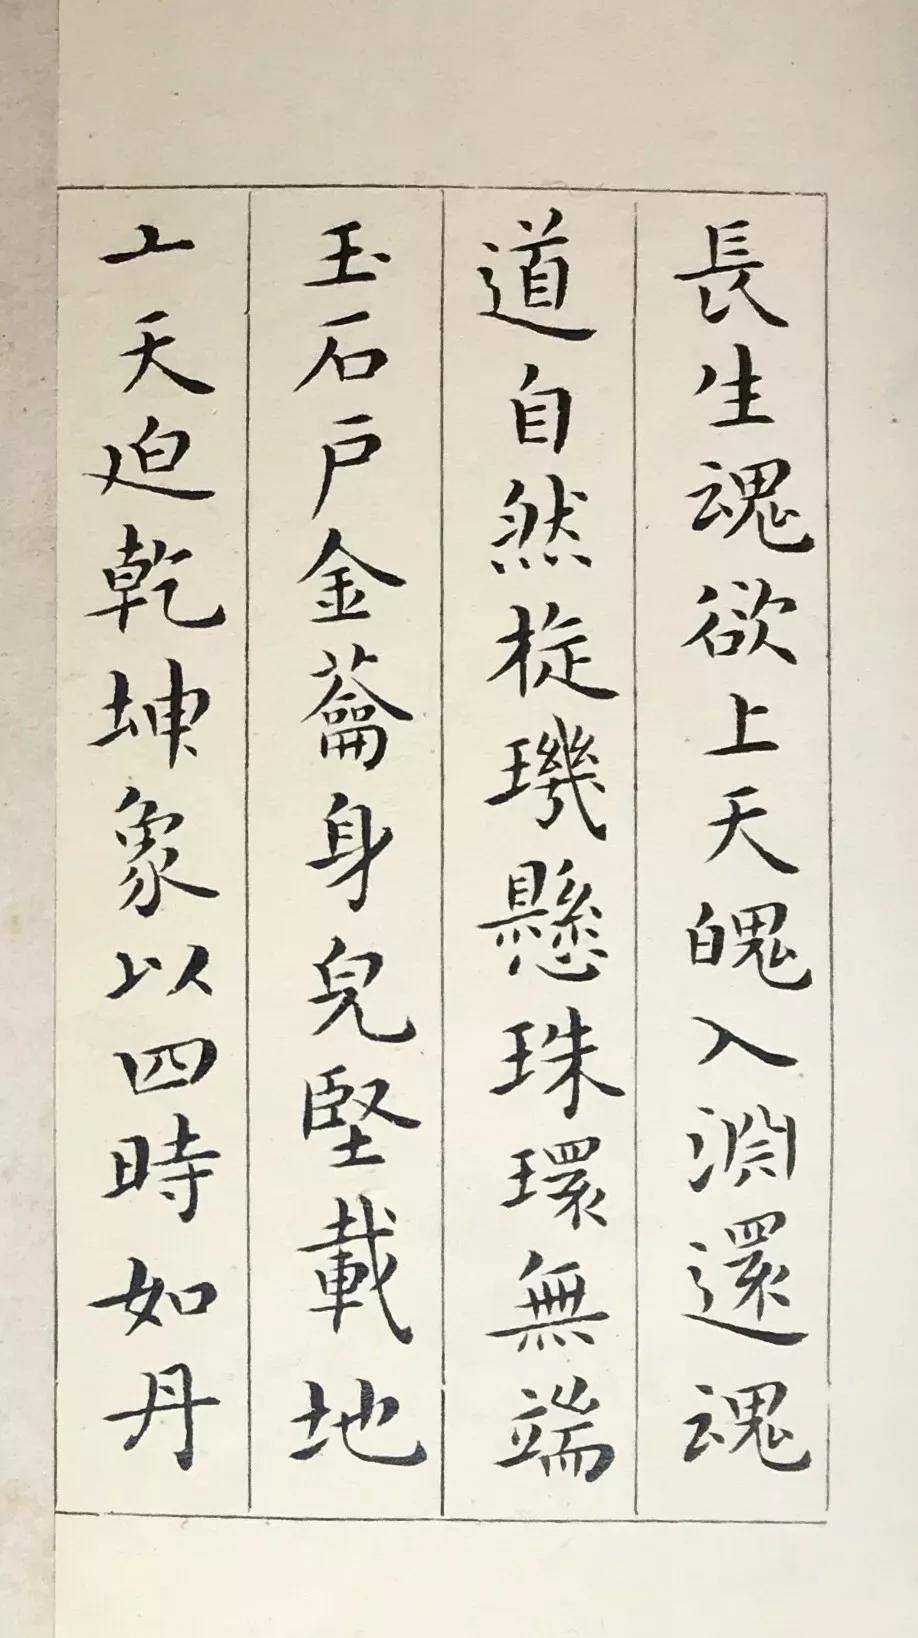 長生魂欲上天魄入淵還魂
道自然旋璣懸珠環無端
玉石戶金蘥身皃堅載地
亠天迫乾坤象以四時如丹